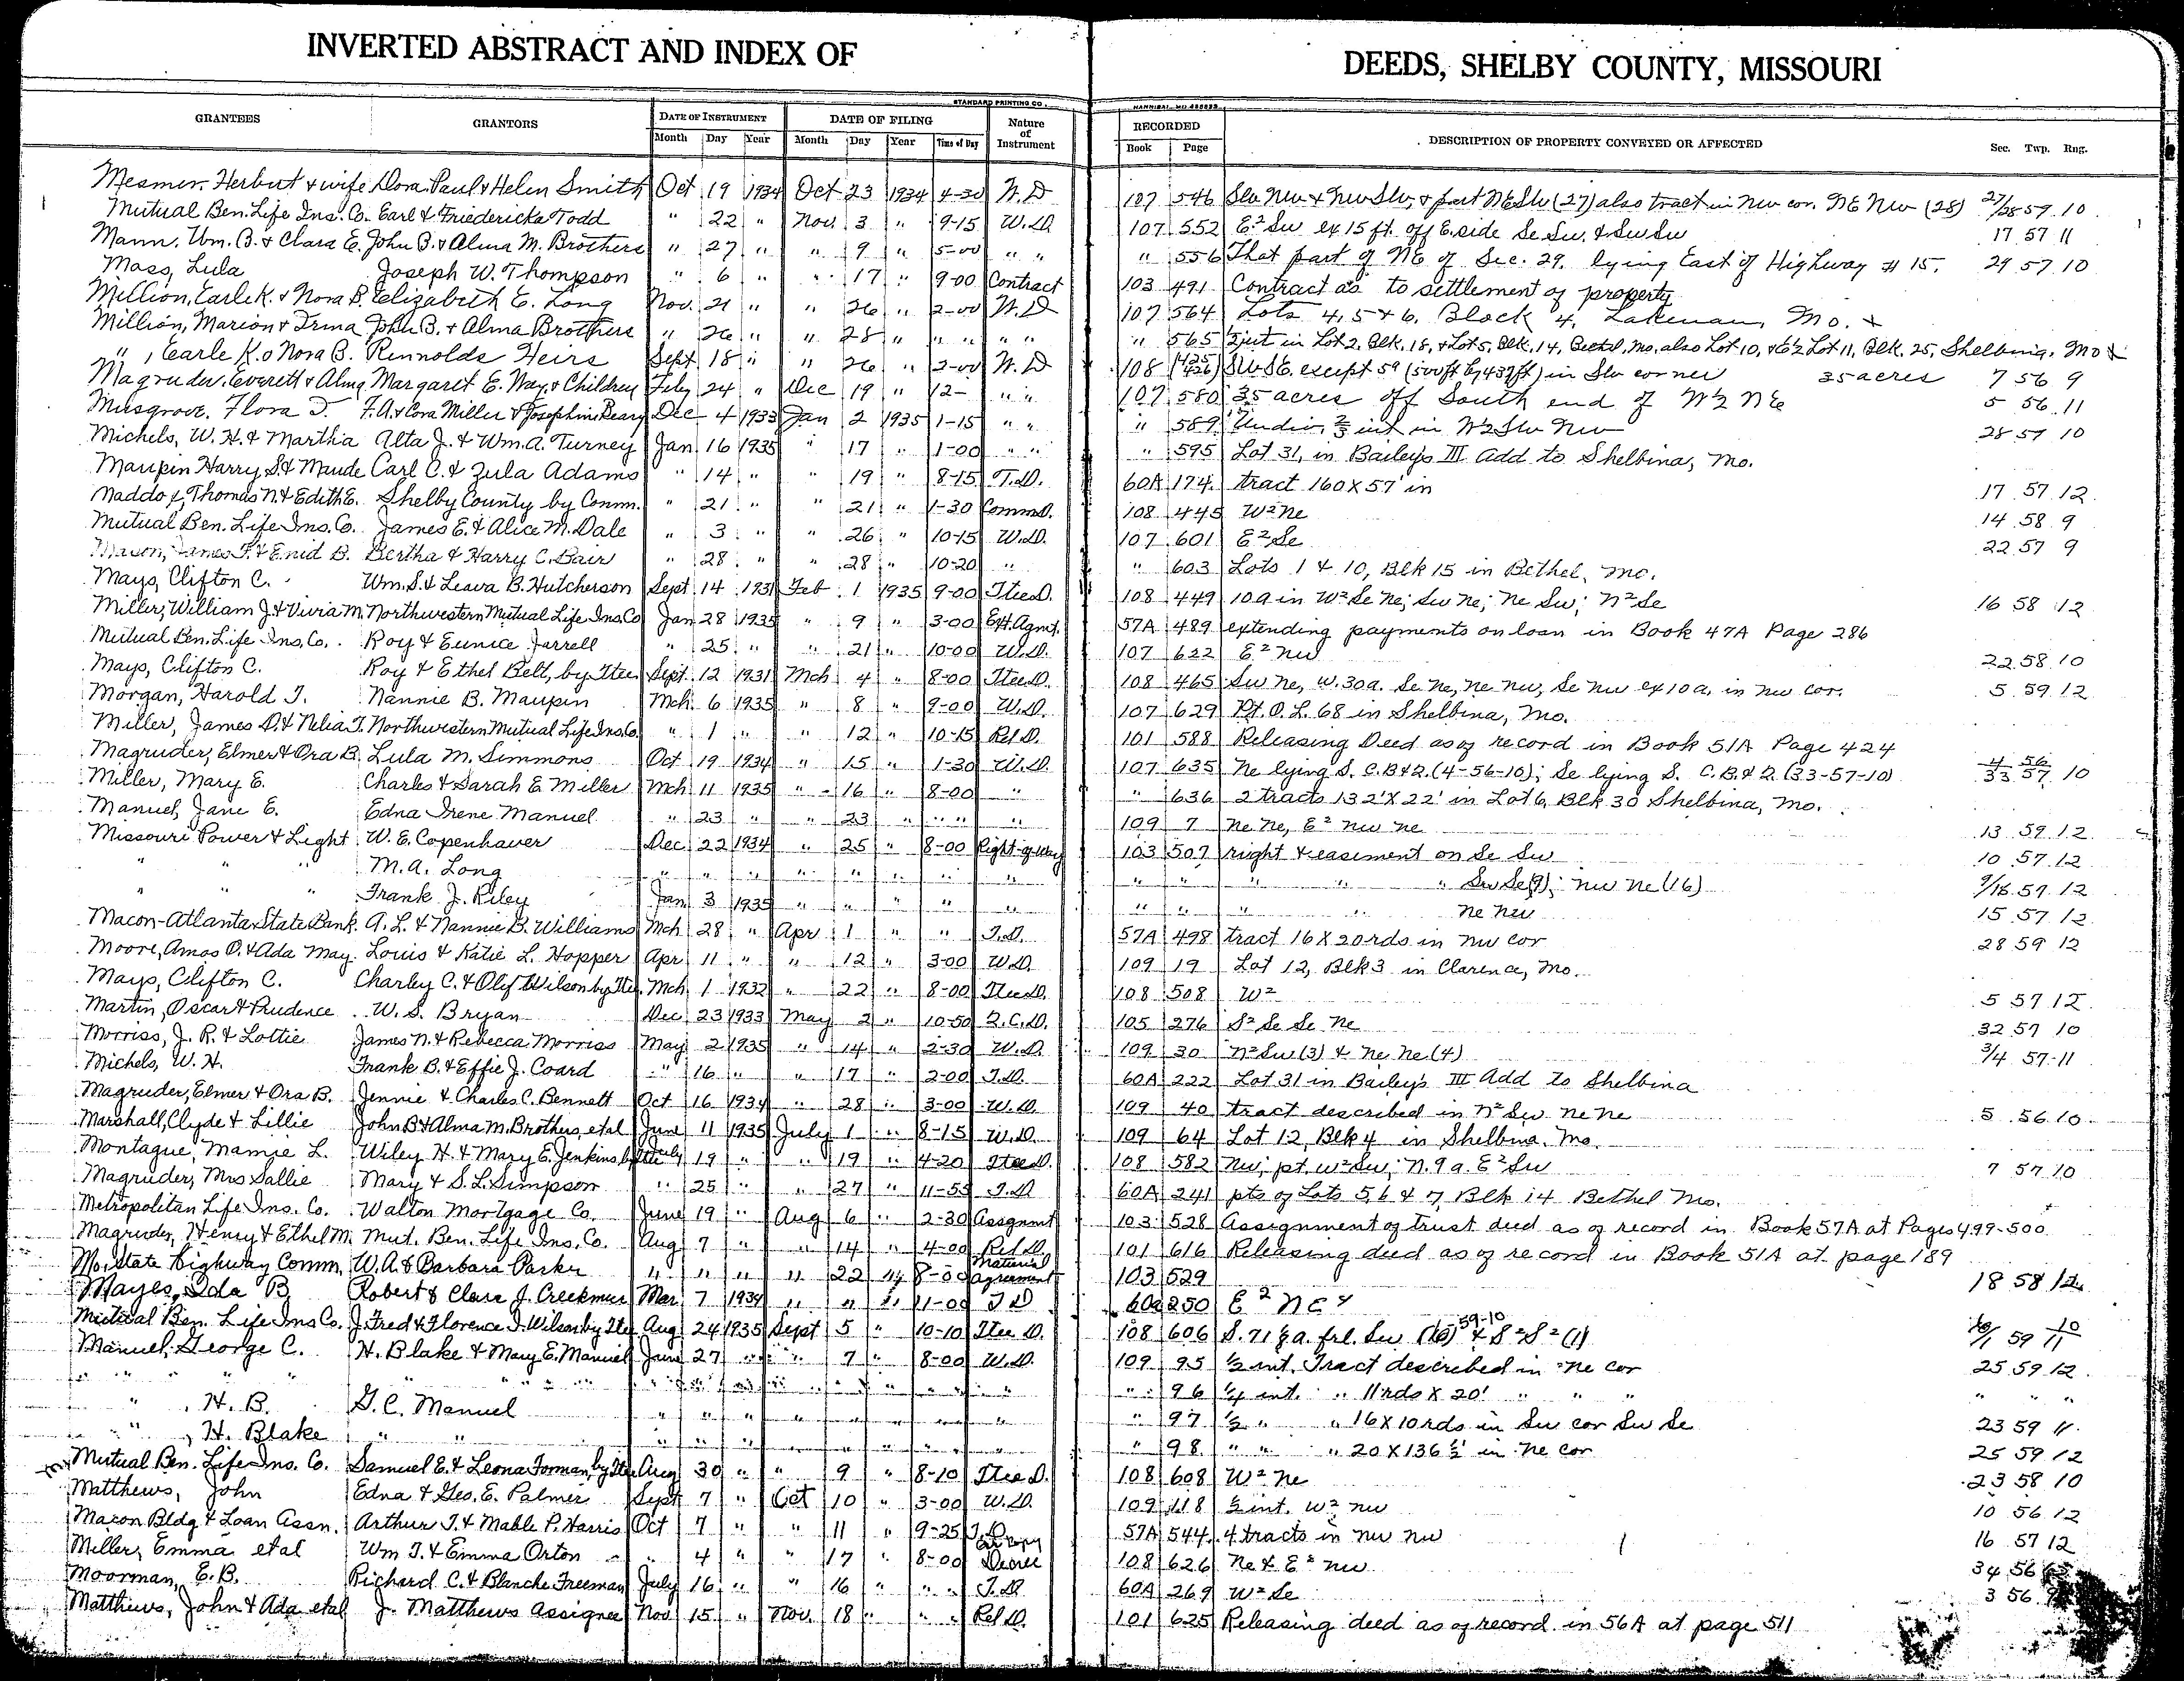 INVERTED ABSTRACT AND INDEX OF DEEDS, SHELBY COUNTY, MISSOURI
STANDARD PRINTING CO. HANNIBAL, MO
GRANTEES GRANTORS DATE OF INSTRUMENT DATE OF FILING Nature of Instrument RECORDED DESCRIPTION OF PROPERTY CONVEYED OR AFFECTED Sec. Twp. Rng.
Month Day Year Month Day Year Time of Day Book Page
Mesmer, Herbert & wife Dora Paul & Helen Smith Oct 19 1934 Oct 23 1934 4-30 W.D 107 546 Sw Nw & Nw Sw, & part NE Sw (27) also tract in Nw cor. NE Nw (28) 27/28 59 10
Mutual Ben. Life Ins. Co. Earl & Friedericka Todd " 22 " Nov. 3 " 9-15 W.D. 107 552 E² Sw ex 15 ft. off E. side Se Sw. & Sw Sw 17 57 11
Mann, Wm. B. & Clara E. John B. & Alma M. Brothers " 27 " " 9 " 5-00 " " " 556 That part of NE of Sec. 29, lying East of Highway # 15. 29 57 10
Mass, Lula Joseph W. Thompson " 6 " " 17 " 9-00 Contract 103 491 Contract as to settlement of property
Million, Earle K. & Nora B. Elizabeth E. Long Nov. 21 " " 26 " 2-00 W.D 107 564 Lots 4, 5 & 6, Block 4, Lakenan, Mo. &
Million, Marion & Irma John B. & Alma Brothers " 26 " " 28 " " " " " " 565 int in Lot 2, Blk. 18, & Lot 5, Blk. 14, Bethel, Mo. also Lot 10, & E½ Lot 11, Blk. 25, Shelbina, Mo &
" , Earle K. & Nora B. Reynolds Heirs Sept. 18 " " 26 " 2-00 W.D 108 (425/426) Sw SE. except 5a (500ft by 437ft) in Sw corner 35 acres 7 56 9
Magruder, Everett & Alma Margaret E. Way & Children Feby 24 " Dec 19 " 12- " " 107 580 35 acres off South end of W½ NE 5 56 11
Musgrove, Flora T. F.A. & Cora Miller & Josephine Beary Dec 4 1933 Jan 2 1935 1-15 " " " 589 Undiv. ⅔ int in W½ Sw Nw 28 57 10
Michels, W. H. & Martha Alta J. & Wm. A. Turney Jan 16 1935 " 17 " 1-00 " " " 595 Lot 31, in Bailey's III Add to Shelbina, Mo.
Maupin Harry S. & Maude Carl C. & Zula Adams " 14 " " 19 " 8-15 T.D. 60A 174 tract 160 X 57' in 17 57 12
Maddox, Thomas N. & Edith E. Shelby County by Comm. " 21 " " 21 " 1-30 CommD. 108 445 W² Ne 14 58 9
Mutual Ben. Life Ins. Co. James E. & Alice M. Dale " 3 " " 26 " 10-15 W.D. 107 601 E² Se 22 57 9
Mason, James F. & Enid B. Bertha & Harry C. Bair " 28 " " 28 " 10-20 " " 603 Lots 1 & 10, Blk 15 in Bethel, Mo.
Mays, Clifton C. Wm. S. & Leava B. Hutcherson Sept 14 1931 Feb 1 1935 9-00 TteeD. 108 449 10a in W² Se Ne; Sw Ne; Ne Sw; N² Se 16 58 12
Miller, William J. & Vivia M. Northwestern Mutual Life Ins. Co Jan 28 1935 " 9 " 3-00 Ext. Agmt. 57A 489 extending payments on loan in Book 47A Page 286
Mutual Ben. Life Ins. Co. Roy & Eunice Jarrell " 25 " " 21 " 10-00 W.D. 107 622 E² Nw 22 58 10
Mays, Clifton C. Roy & Ethel Belt, by Ttee Sept. 12 1931 Mch 4 " 8-00 Ttee D. 108 465 Sw Ne, W. 30a. Se Ne, Ne Nw, Se Nw ex 10a, in Nw cor. 5 59 12
Morgan, Harold T. Nannie B. Maupin Mch 6 1935 " 8 " 9-00 W.D. 107 629 Pt. O. L. 68 in Shelbina, Mo.
Miller, James D. & Nelia T. Northwestern Mutual Life Ins. Co. " 1 " " 12 " 10-15 Rel D. 101 588 Releasing Deed as of record in Book 51A Page 424
Magruder, Elmer & Ora B. Lula M. Simmons Oct 19 1934 " 15 " 1-30 W.D. 107 635 Ne lying S. C.B.&Q. (4-56-10); Se lying S. C.B.&Q. (33-57-10) 4/33 56/57 10
Miller, Mary E. Charles & Sarah E. Miller Mch 11 1935 " 16 " 8-00 " " 636 2 tracts 132' X 22' in Lot 6, Blk 30 Shelbina, Mo.
Manuel, Jane E. Edna Irene Manuel " 23 " " 23 " " " " 109 7 Ne Ne, E² Nw Ne 13 59 12
Missouri Power & Light W. E. Copenhaver Dec 22 1934 " 25 " 8-00 Right-of-way 103 507 right & easement on Se Sw 10 57 12
" " " M. A. Long " " " " " " " " " " " " Sw Se (9); Nw Ne (16) 9/16 57 12
" " " Frank J. Riley Jan 3 1935 " " " " " " " " " Ne Nw 15 57 12
Macon-Atlanta State Bank. A. L. & Nannie B. Williams Mch 28 " Apr 1 " " T.D. 57A 498 tract 16 X 20 rds in Nw cor 28 59 12
Moore, Amos O. & Ada May Louis & Katie L. Hopper Apr 11 " " 12 " 3-00 W.D. 109 19 Lot 12, Blk 3 in Clarence, Mo.
Mays, Clifton C. Charley C. & Olif Wilson by Ttee Mch 1 1932 " 22 " 8-00 Ttee D. 108 508 W² 5 57 12
Martin, Oscar & Prudence W. S. Bryan Dec 23 1933 May 2 " 10-50 Q.C.D. 105 276 S² Se Se Ne 32 57 10
Morriss, J. R. & Lottie James N. & Rebecca Morriss May 2 1935 " 14 " 2-30 W.D. 109 30 N² Sw (3) & Ne Ne (4) 3/4 57 11
Michels, W. H. Frank B. & Effie J. Coard " 16 " " 17 " 2-00 T.D. 60A 222 Lot 31 in Bailey's III Add to Shelbina
Magruder, Elmer & Ora B. Jennie & Charles C. Bennett Oct 16 1934 " 28 " 3-00 W.D. 109 40 tract described in N² Sw Ne Ne 5 56 10
Marshall, Clyde & Lillie John B & Alma M. Brothers, etal June 11 1935 July 1 " 8-15 W.D. 109 64 Lot 12, Blk 4 in Shelbina, Mo.
Montague, Mamie L. Wiley H. & Mary E. Jenkins by Ttee July 19 " " 19 " 4-20 Ttee D. 108 582 Nw; pt. W² Sw; N. 9 a. E² Sw 7 57 10
Magruder, Mrs Sallie Mary & S. L. Simpson " 25 " " 27 " 11-55 T.D 60A 241 pts of Lots 5, 6 & 7, Blk 14 Bethel Mo.
Metropolitan Life Ins. Co. Walton Mortgage Co. June 19 " Aug 6 " 2-30 Assgnmt 103 528 Assignment of trust deed as of record in Book 57A at Pages 499-500
Magruder, Henry & Ethel M. Mut. Ben. Life Ins. Co. Aug 7 " " 14 " 4-00 Rel D. 101 616 Releasing deed as of record in Book 51A at page 189
Mo. State Highway Comm. W. A. & Barbara Parker " " " " 22 " 8-00 Material agreement 103 529 18 58 12
Mayes, Ida B Robert & Clara J. Creekmur Mar 7 1934 " " " 11-00 T D 60a 250 E² NE
Mutual Ben. Life Ins Co. J. Fred & Florence I. Wilson, by Ttee Aug 24 1935 Sept 5 " 10-10 Ttee D. 108 606 S. 71 ½ a. frl. Sw 59-10 & S² S² (1) 59
Manuel, George C. H. Blake & Mary E. Manuel June 27 " " 7 " 8-00 W.D. 109 95 ½ int. Tract described in Ne cor 25 59 12
" " " " " " " " " " " " " " 96 ¼ int. " 11 rds X 20' " " " " " "
" , H. B. G. C. Manuel " " " " " " " " " 97 ½ " " 16 X 10 rds in Sw cor Sw Se 23 59 11
" , H. Blake " " " " " " " " " " " 98 " " " 20 X 136 ½' in Ne cor 25 59 12
Mutual Ben. Life Ins. Co. Samuel E. & Leona Forman, by Ttee Aug 30 " " 9 " 8-10 Ttee D. 108 608 W² Ne 23 58 10
Matthews, John Edna & Geo. E. Palmer Sept 7 " Oct 10 " 3-00 W.D. 109 118 ½ int. W² Nw 10 56 12
Macon Bldg & Loan Assn. Arthur T. & Mable P. Harris Oct 7 " " 11 " 9-25 T.D. 57A 544 4 tracts in Nw Nw 16 57 12
Miller, Emma etal Wm T. & Emma Orton " 4 " " 17 " 8-00 Cert Copy Decree 108 626 Ne & E² Nw 34 56
Moorman, E. B. Richard C. & Blanche Freeman July 16 " " 16 " " " T.D. 60A 269 W² Se 3 56 9
Matthews, John & Ada etal J. Matthews Assignee Nov 15 " Nov. 18 " " " Rel D. 101 625 Releasing deed as of record in 56A at page 511